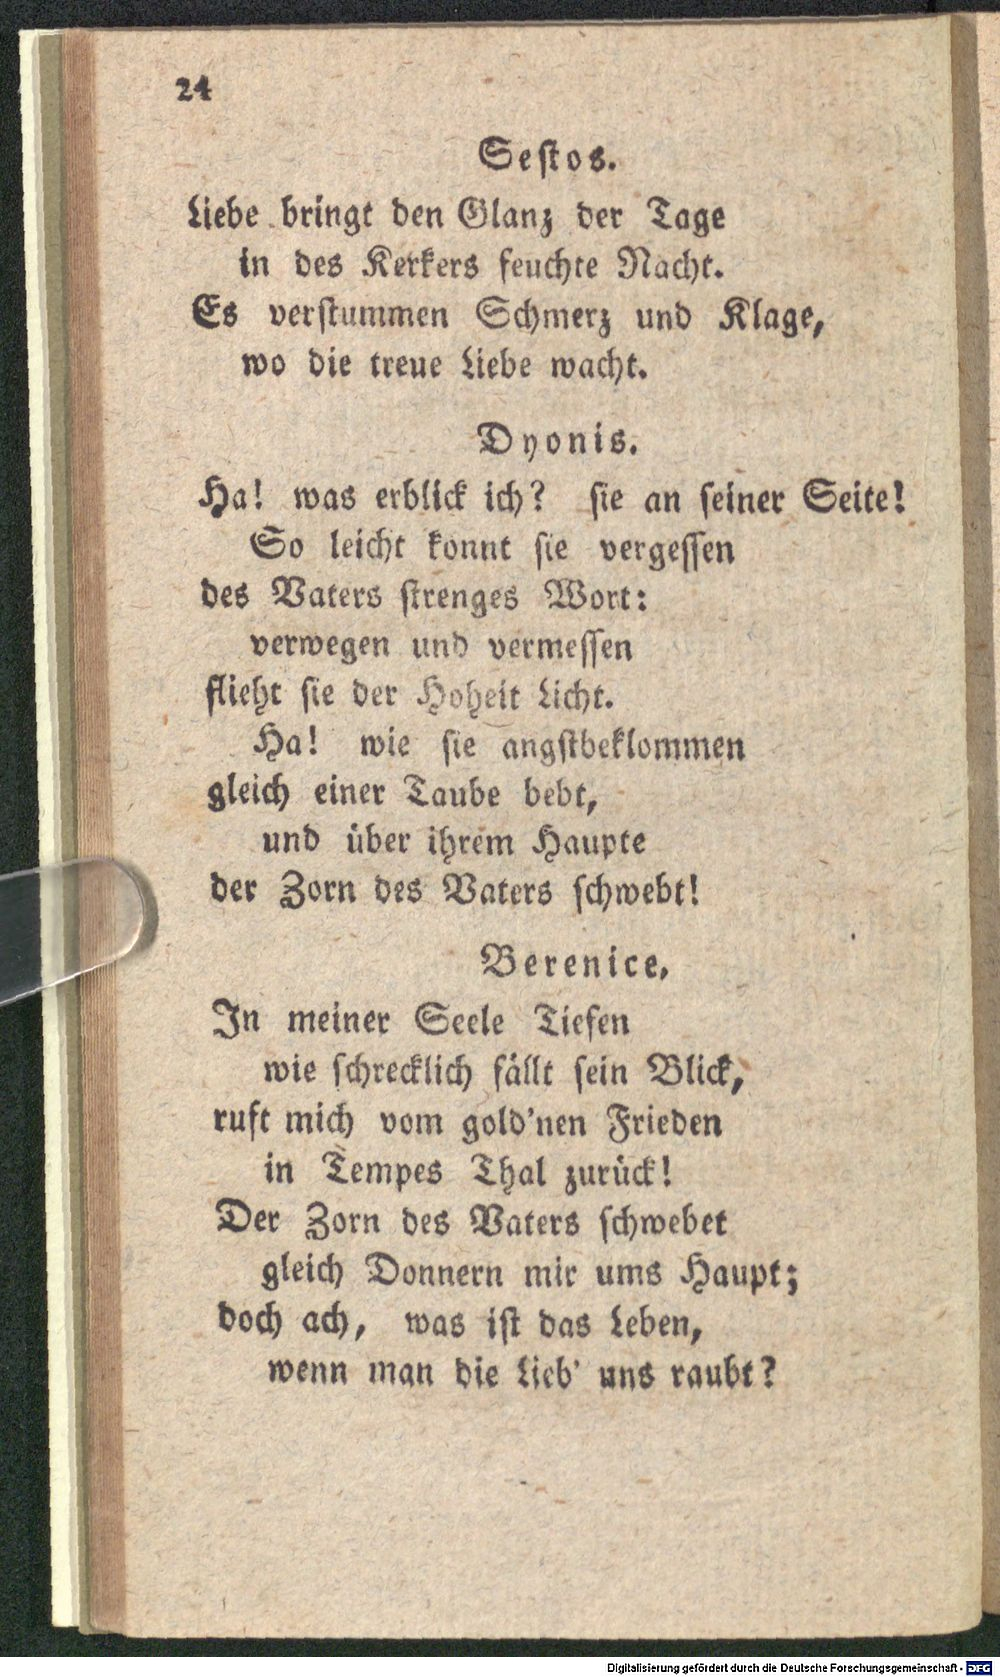 24
Sestos.
Liebe bringt den Glanz der Tage
in des Kerkers feuchte Nacht.
Es verstummen Schmerz und Klage,
wo die treue Liebe wacht.
Dyonis.
Ha! was erblick ich? sie an seiner Seite!
So leicht konnt sie vergessen
des Vaters strenges Wort:
verwegen und vermessen
flieht sie der Hoheit Licht.
Ha! wie sie angstbeklommen
gleich einer Taube bebt,
und über ihrem Haupte
der Zorn des Vaters schwebt!
Berenice.
In meiner Seele Tiefen
wie schrecklich fällt sein Blick,
ruft mich vom gold'nen Frieden
in Tempes Thal zurück!
Der Zorn des Vaters schwebet
gleich Donnern mir ums Haupt;
doch ach, was ist das Leben,
wenn man die Lieb' uns raubt?
Digitalisierung gefördert durch die Deutsche Forschungsgemeinschaft - DFG